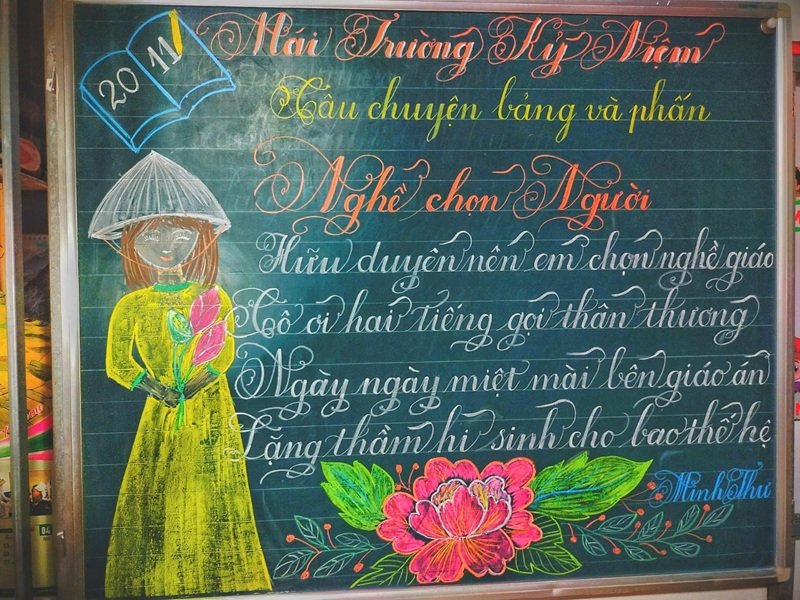 20 11
Mái Trường Kỷ Niệm
Câu chuyện bảng và phấn
Nghề chọn Người
Hữu duyên nên em chọn nghề giáo
Cô ơi hai tiếng gọi thân thương
Ngày ngày miệt mài bên giáo án
Lặng thầm hi sinh cho bao thế hệ
Minh Thư